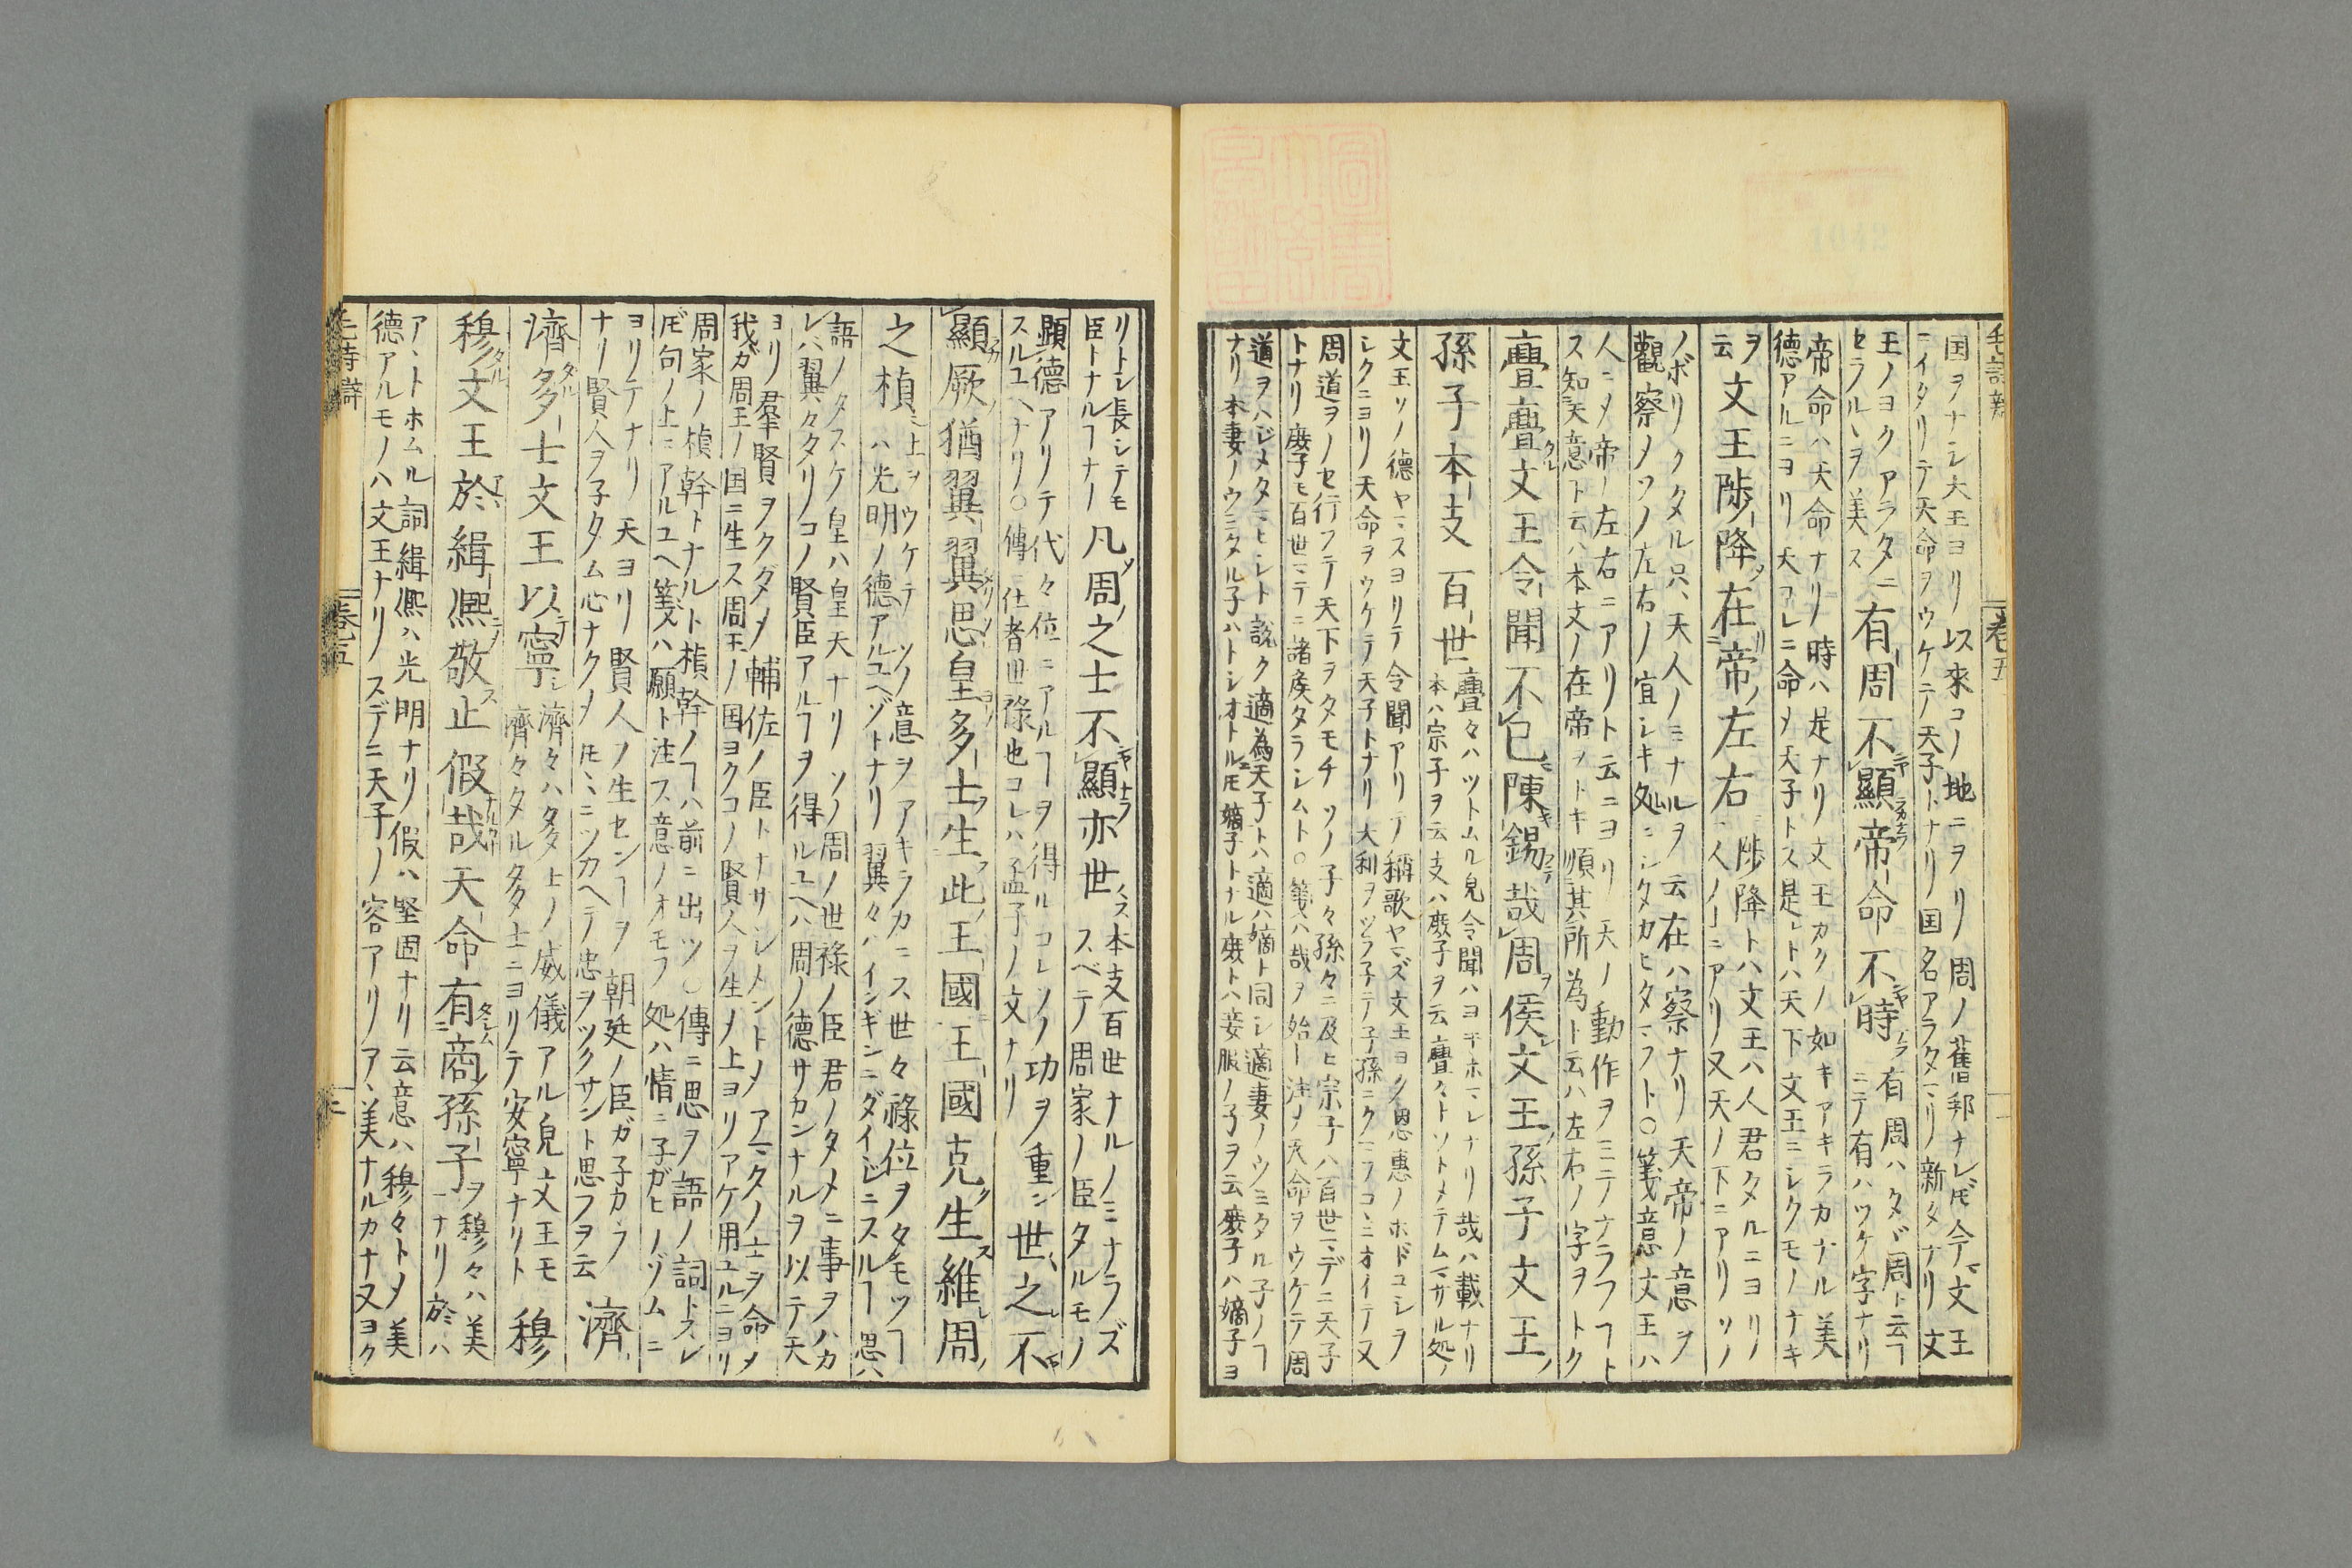 毛詩辯
卷五
国ヲナシ大王ヨリ以來コノ地ニヲリ周ノ舊邦ナレ𪜈今文王
ニイタリテ天命ヲウケテ天子トナリ国名アラタマリ新タナリ文
王ノヨクアラタニ
セラルヽヲ美ス
有周不顯帝命不時
有周ハタヾ周ト云ヿ
ニテ有ハツケ字ナリ
帝命ハ天命ナリ時ハ是ナリ文王カクノ如キアキラカナル美
德アルニヨリ天コレニ命メ天子トス是レトハ天下文王ニシクモノナキ
ヲ
云
文王陟降在帝左右
陟降トハ文王ハ人君タルニヨリノ
人ノ上ニアリ又天ノ下ニアリソノ
ノボリクタル只天人ノミナルヲ云在ハ察ナリ天帝ノ意ヲ
觀察メソノ左右ノ宜シキ処ニシタカヒタマフト○箋意文王ハ
人ニメ帝ノ左右ニアリト云ニヨリ天ノ動作ヲミテナラフヿト
ス知天意ト云ハ本文ノ在帝ヲトキ順其所為ト云ハ左右ノ字ヲトク
亹亹文王令聞不已陳錫哉周侯文王孫子文王
孫子本支百世
亹々ハツトムル皃令聞ハヨキホマレナリ哉ハ載ナリ
本ハ宗子ヲ云支ハ庻子ヲ云亹々トツトメテムマサル処ノ
文王ソノ德ヤマスヨリテ令聞アリテ稱歌ヤマズ文王ヨク恩惠ノホドコシヲ
シクニヨリ天命ヲウケテ天子トナリ大利ヲツフ子テ子孫ニクマフコヽニオイテ又
周道ヲノセ行フテ天下ヲタモチソノ子々孫々ニ及ヒ宗子ハ百世マデニ天子
トナリ庻子モ百世マテニ諸矦タラシムト○箋ハ哉ヲ始ト注メ天命ヲウケテ周
道ヲハジメタマヒシト說ク適為天子トハ適ハ嫡ト同シ適妻ノウミタル子ノヿ
ナリ本妻ノウミタル子ハトシオトル𪜈嫡子トナル庻トハ妾服ノ子ヲ云庻子ハ嫡子ヨ
リトシ長シテモ
臣トナルヿナノ
凡周之士不顯亦世
本支百世ナルノミナラズ
スベテ周家ノ臣タルモノ
顕德アリテ代々位ニアルヿヲ得ルコレソノ功ヲ重ン
スルユヘナリ○傳ニ仕者世祿也コレハ孟子ノ文ナリ
世之不
顯厥猶翼翼思皇多士生此王國王國克生維周
之楨
上ヲウケテソノ意ヲアキラカニス世々祿位ヲタモツヿ
ハ光明ノ德アルユヘゾトナリ翼々ハインギンニダイジニスルヿ思ハ
語ノタスケ皇ハ皇天ナリソノ周ノ世祿ノ臣君ノタメニ事ヲハカ
レハ翼々タリコノ賢臣アルヿヲ得ルユヘハ周ノ德サカンナルヲ以テ天
ヨリ羣賢ヲクダメ輔佐ノ臣トナサシメントメアマタノ士ヲ命メ
我ガ周王ノ国ニ生ス周王ノ国ヨクコノ賢人ヲ生メ上ヨリアケ用ユルニヨリ
周家ノ楨幹トナルト楨幹ノヿハ前ニ出ツ○傳ニ思ヲ語ノ詞トスレ
𪜈句ノ上ニアルユヘ箋ハ願ト注ス意ノオモフ処ハ情ニ子ガヒノゾムニ
ヨリテナリ天ヨリ賢人ノ生センヿヲ朝廷ノ臣ガ子カフ
ナリ賢人ヲ子タム心ナクメ𪜈ヽニツカヘテ忠ヲツクサント思フヲ云
濟
濟多士文王以寧
濟々ハ多士ノ威儀アル皃文王モ
濟々タル多士ニヨリテ安寧ナリト
穆
穆文王於緝熙敬止假哉天命有商孫子
ヲ穆々ハ美
ナリ於ハ
アヽトホムル詞緝熙ハ光明ナリ假ハ堅固ナリ云意ハ穆々トメ美
德アルモノハ文王ナリスデニ天子ノ容アリアヽ美ナルカナ又ヨク
毛詩辯
卷五